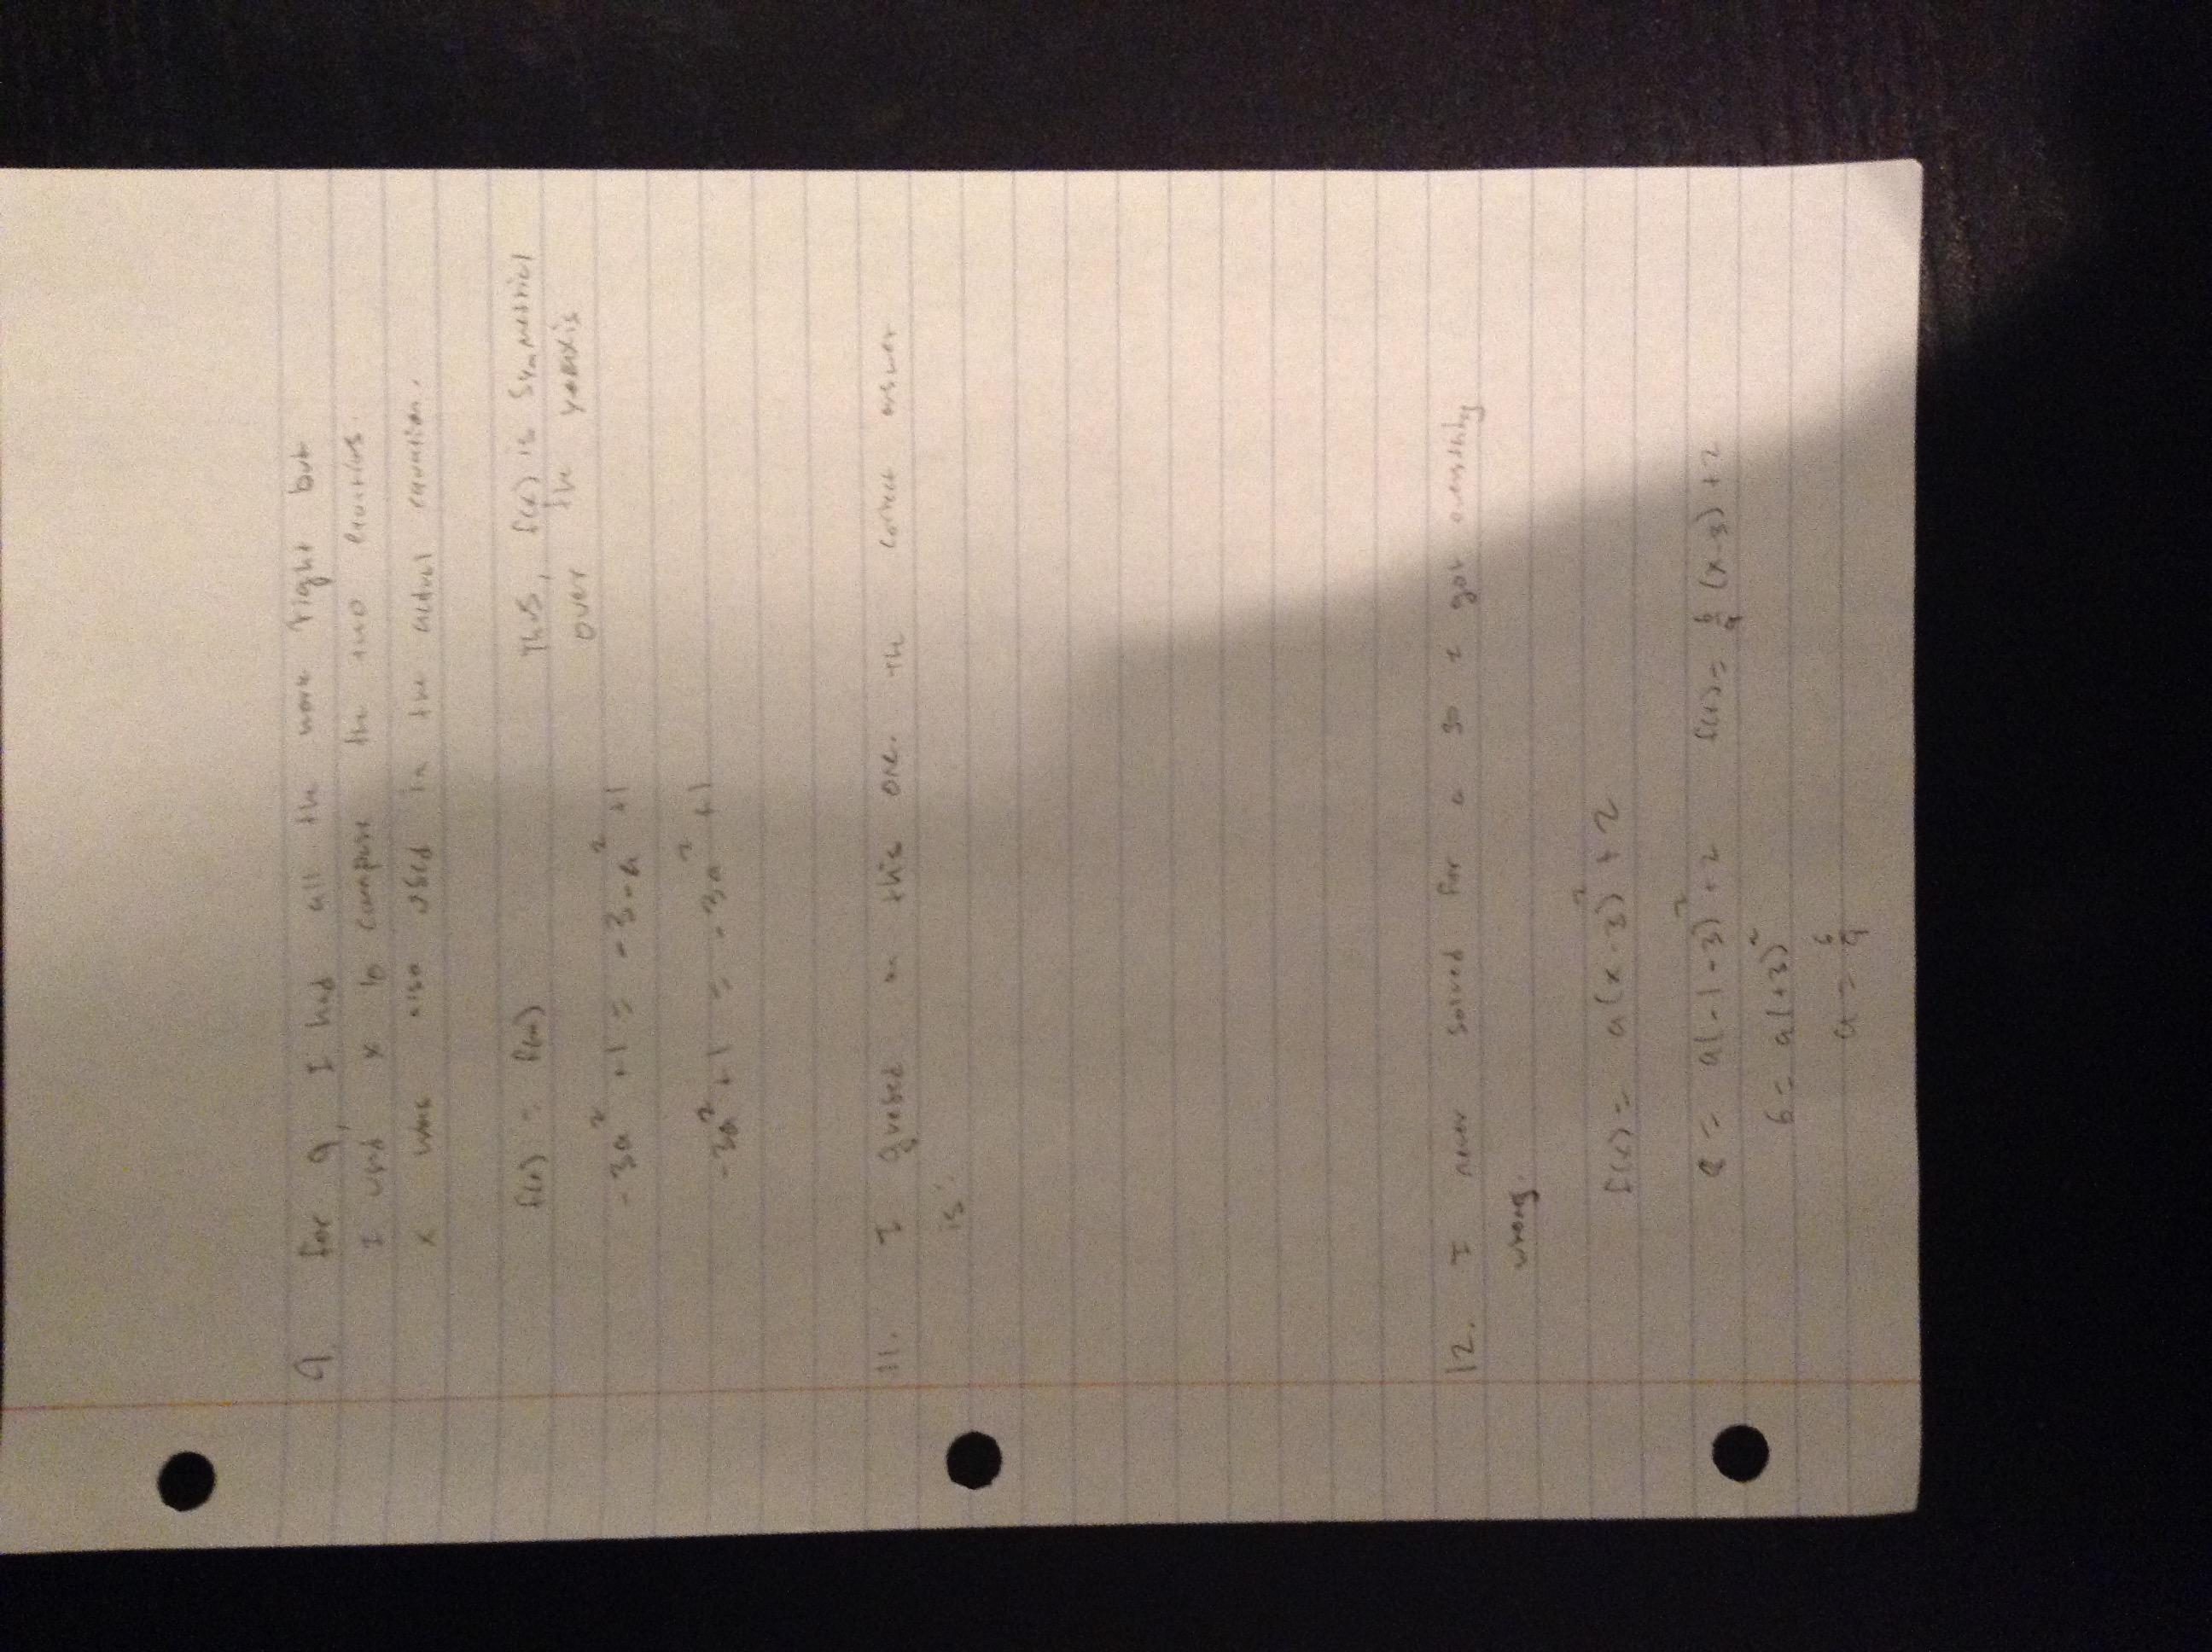 9. For 9, I had all the work right but
I used x to compare the two equations.
x was also used in the actual equation.
f(a) = f(-a) Thus, f(x) is symmetrical
over the y-axis
-3a² +1 = -3-a² +1
-3a² +1 = -3a² +1
11. I guessed on this one. The correct answer
is:
12. I never solved for a so I got everything
wrong.
f(x) = a(x-3)² + 2
8 = a(-1-3)² +2 f(x) = 6/9 (x-3) +2
6 = a(+3)²
a = 6/9